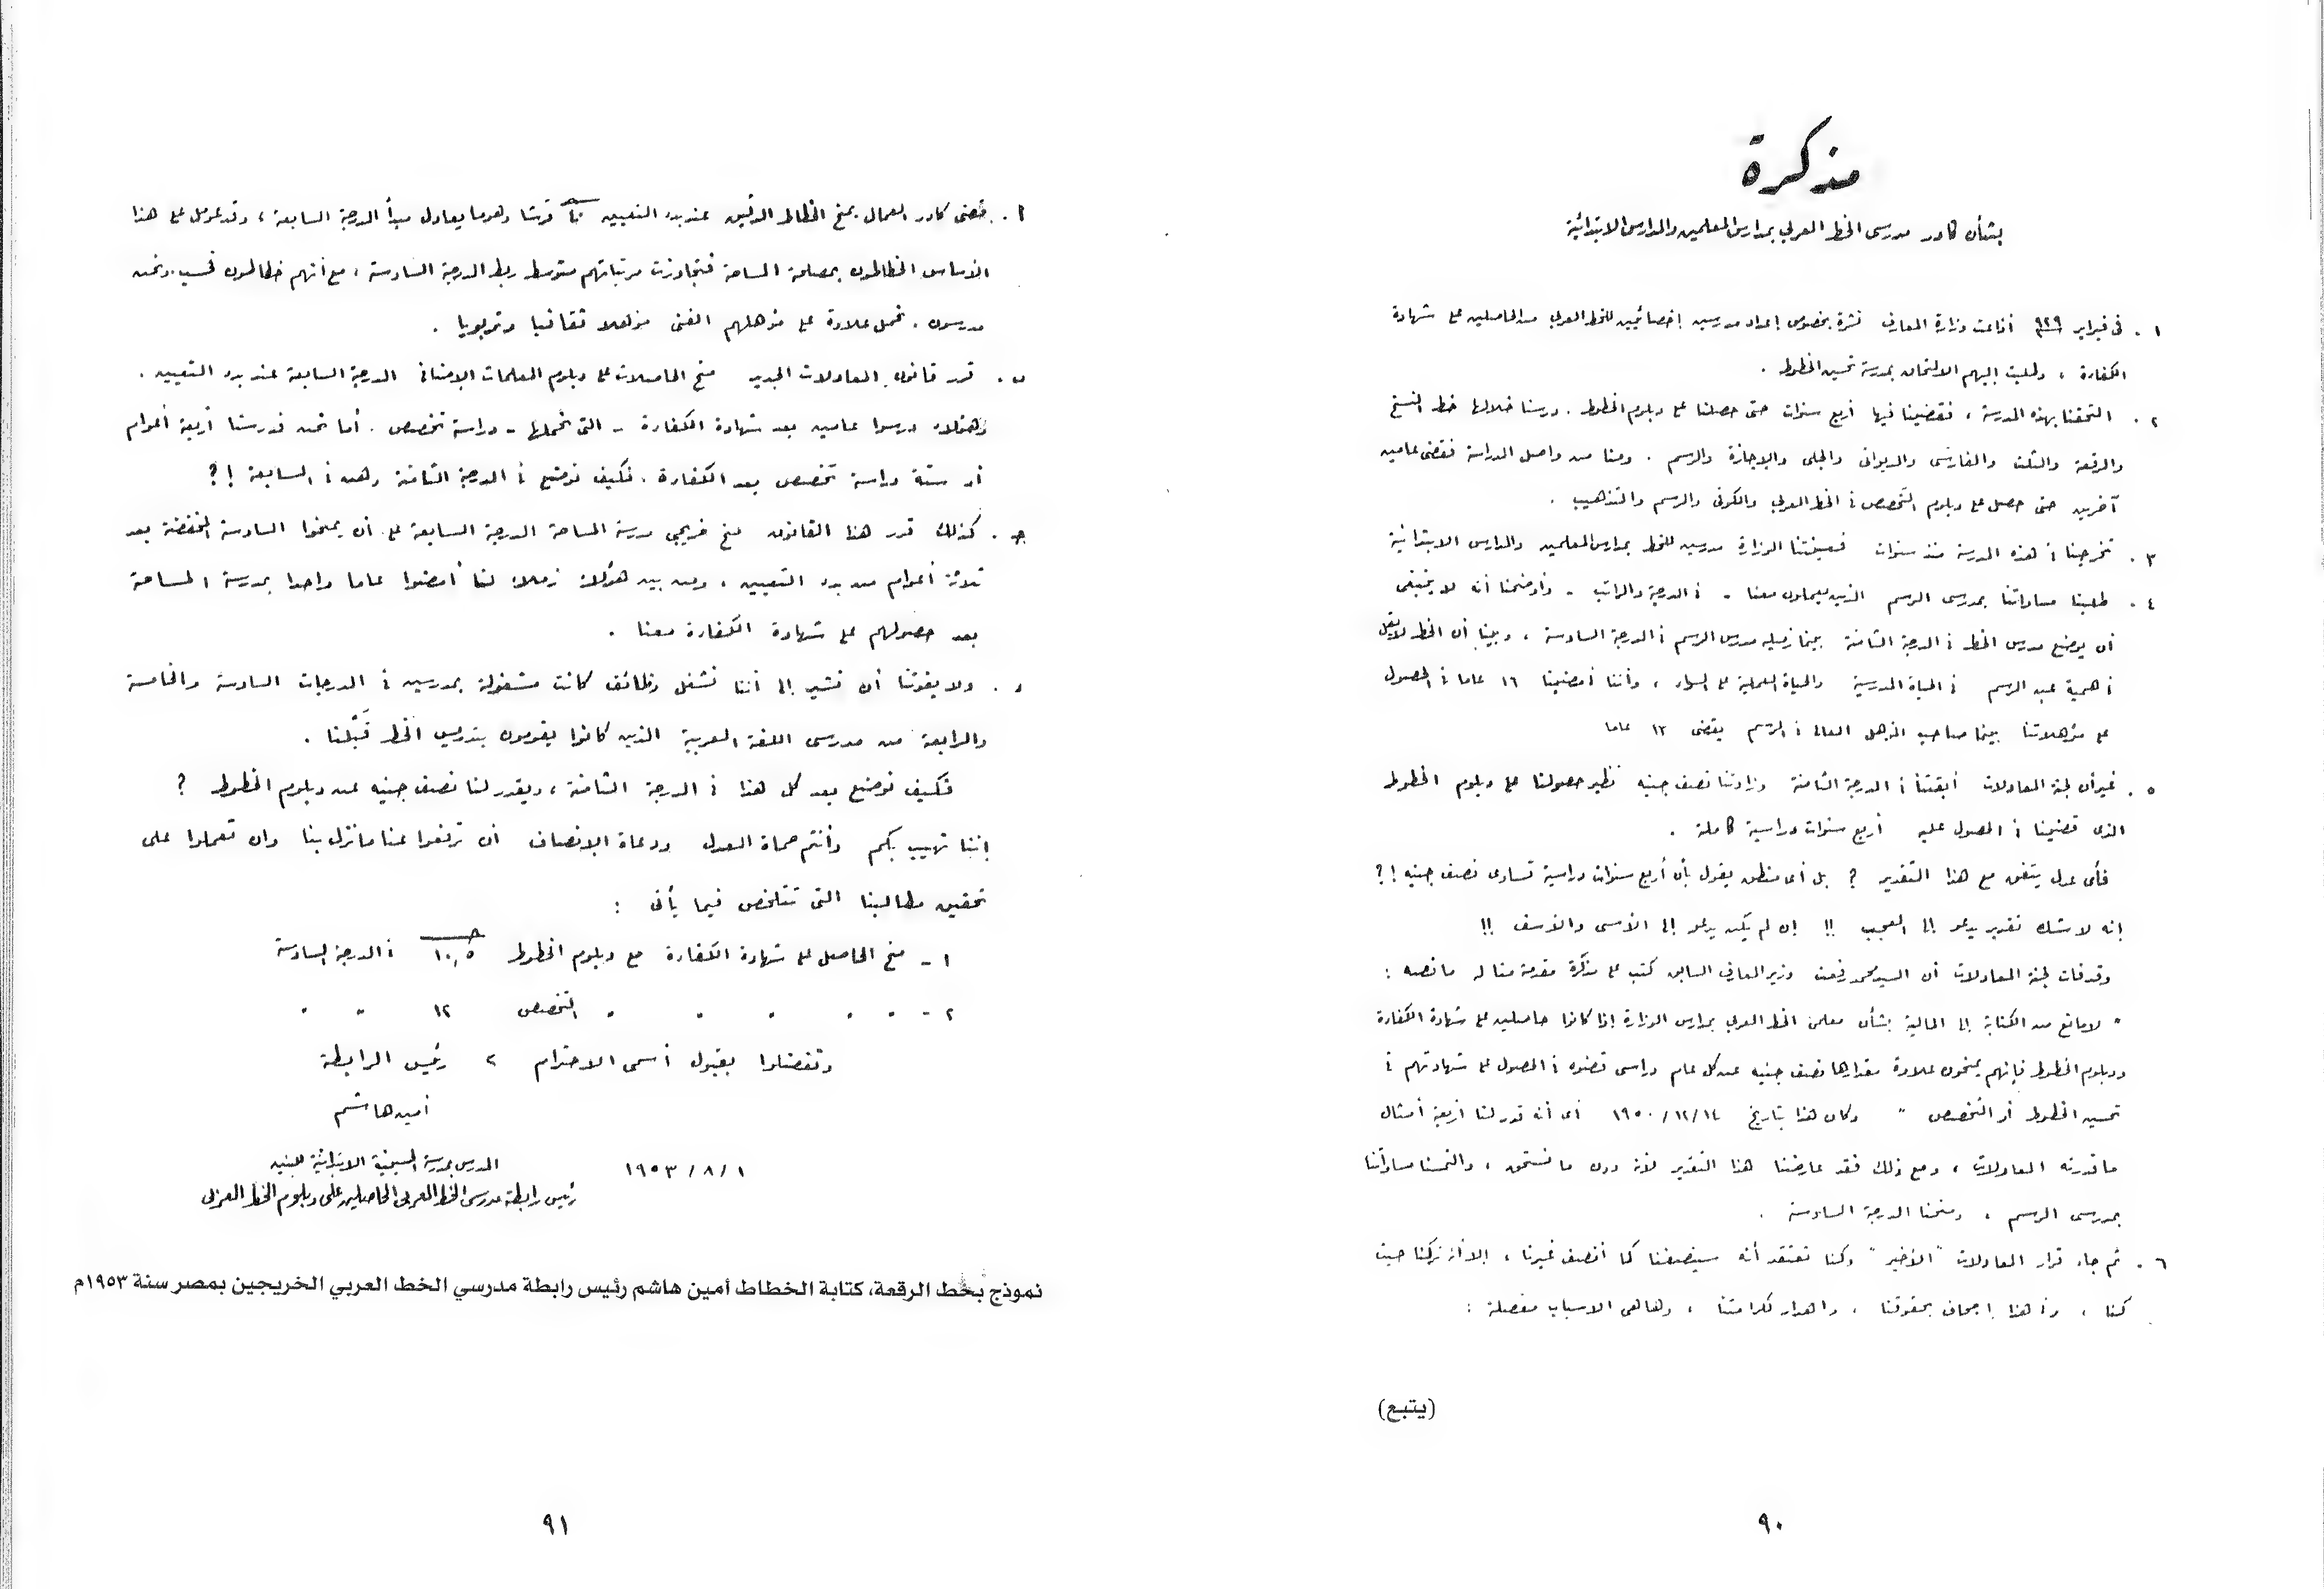 مذكرة
بشأن كادر مدرسى الخط العربي بمدارس المعلمين والمدارس الابتدائية
١ . فى فبراير ٩٢٩ أذاعت وزارة المعارف نشرة بخصوص إعداد مدرسين إخصائيين للخط العربي من الحاصلين على شهادة
الكفاءة ، وطلبت إليهم الالتحاق بمدرسة تحسين الخطوط .
٢ . التحقنا بهذه المدرسة ، فقضينا فيها أربع سنوات حتى حصلنا على دبلوم الخطوط . درسنا خلالها خط النسخ
والرقعة والثلث والفارسى والديوانى والجلى والإجازة والرسم . ومنا من واصل الدراسة فقضى عامين
آخرين حتى حصل على دبلوم التخصص فى الخط العربي والكوفى والرسم والتذهيب .
٣ . تخرجنا فى هذه المدرسة منذ سنوات فعينتنا الوزارة مدرسين للخط بمدارس المعلمين والمدارس الابتدائية
٤ . طلبنا مساواتنا بمدرسى الرسم الذين يعملون معنا - فى الدرجة والراتب - وأوضحنا أنه لا ينبغى
أن يوضع مدرس الخط فى الدرجة الثامنة بينما زميله مدرس الرسم فى الدرجة السادسة ، وبينا أن الخط لا يقل
أهمية عن الرسم فى الحياة المدرسية والحياة العملية على السواء ، وأننا أمضينا ١٦ عاما فى الحصول
على مؤهلاتنا بينما صاحب المؤهل العالى فى الرسم يقضى ١٣ عاما
٥ . غير أن لجنة المعادلات أبقتنا فى الدرجة الثامنة وزادتنا نصف جنيه نظير حصولنا على دبلوم الخطوط
الذى قضينا فى الحصول عليه أربع سنوات دراسية كاملة .
فأى عدل يتفق مع هذا التقدير ؟ بل أى منطق يقول بأن أربع سنوات دراسية تساوى نصف جنيه !؟
إنه لا شك تقدير يدعو إلى العجب !! إن لم يكن يدعو إلى الأسى والأسف !!
وقد فات لجنة المعادلات أن السيد محمد رفعت وزير المعارف السابق كتب على مذكرة مقدمة منا له ما نصه :
" لا مانع من الكتابة إلى المالية بشأن معلمى الخط العربي بمدارس الوزارة إذا كانوا حاصلين على شهادة الكفاءة
ودبلوم الخطوط فإنهم يمنحون علاوة مقدارها نصف جنيه عن كل عام دراسى قضوه فى الحصول على شهادتهم فى
تحسين الخطوط أو التخصص " وكان هذا بتاريخ ١٩٥٠/١٢/١٤ أى أنه قدر لنا أربعة أمثال
ما قدرته المعادلات ، ومع ذلك فقد عارضنا هذا التقدير لأنه دون ما نستحق ، والتمسنا مساواتنا
بمدرسى الرسم ، ومنحنا الدرجة السادسة .
٦ . ثم جاء قرار المعادلات " الأخير " وكنا نعتقد أنه سينصفنا كما أنصف غيرنا ، إلا أنه تركنا حيث
كنا ، وفى هذا إجحاف بحقوقنا ، وإهدار لكرامتنا ، وهاهى الأسباب مفصلة :
(يتبع)
٩٠
أ . قضى كادر العمال بمنح الخطاط الدقيق عند بدء التعيين قرشا وهو ما يعادل مبدأ الدرجة السابعة ، وقد عومل على هذا
الأساس الخطاطون بمصلحة المساحة فتجاوزت مرتباتهم متوسط ربط الدرجة السادسة ، مع أنهم خطاطون فحسب . ونحن
مدرسون . نحمل علاوة على مؤهلهم الفنى مؤهلا ثقافيا وتربويا .
ب . قرر قانون المعادلات الجديد منح الحاصلات على دبلوم المعلمات الإضافى الدرجة السابعة عند بدء التعيين .
وهؤلاء درسوا عامين بعد شهادة الكفاءة - التى نحملها - دراسة تخصص . أما نحن فدرسنا أربعة أعوام
أو ستة دراسة تخصص بعد الكفاءة . فكيف نوضع فى الدرجة الثامنة وهن فى السابعة !؟
ج . كذلك قرر هذا القانون منح خريجى مدرسة المساحة الدرجة السابعة على أن يمنحوا السادسة المخفضة بعد
ثلاثة أعوام من بدء التعيين ، ومن بين هؤلاء زملاء لنا أمضوا عاما واحدا بمدرسة المساحة
بعد حصولهم على شهادة الكفاءة معنا .
د . ولا يفوتنا أن نشير إلى أننا نشغل وظائف كانت مشغولة بمدرسين فى الدرجات السادسة والخامسة
والرابعة من مدرسى اللغة العربية الذين كانوا يقومون بتدريس الخط قَبْلَنا .
فكيف نوضع بعد كل هذا فى الدرجة الثامنة ، ويقدر لنا نصف جنيه عن دبلوم الخطوط ؟
إننا نهيب بكم وأنتم حماة العدل ودعاة الإنصاف أن ترفعوا عنا ما نزل بنا وأن تعملوا على
تحقيق مطالبنا التى تتلخص فيما يأتى :
١ - منح الحاصل على شهادة الكفاءة مع دبلوم الخطوط ١٠,٥ جـ فى الدرجة السادسة
٢ - " " " " " التخصص ١٢ " "
وتفضلوا بقبول أسمى الاحترام ، رئيس الرابطة
أمين هاشم
المدرس بمدرسة الحسينية الابتدائية للبنين
١٩٥٣/٨/١
رئيس رابطة مدرسى الخط العربى الحاصلين على دبلوم الخط العربى
نموذج بخط الرقعة، كتابة الخطاط أمين هاشم رئيس رابطة مدرسي الخط العربي الخريجين بمصر سنة ١٩٥٣م
٩١